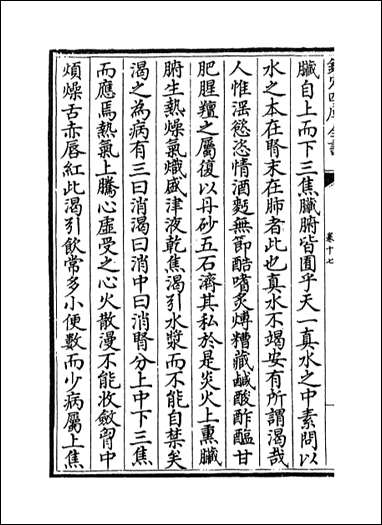 臓自上而下三焦臓腑皆囿乎天一真水之中素問以
水之本在腎末在肺者此也真水不竭安有所謂渴哉
人惟滛慾恣情酒麪無節酷嗜炙煿糟藏鹹酸酢醢甘
肥腥羶之屬復以丹砂五石濟其私於是炎火上熏臓
腑生熱燥氣熾盛津液乾焦渴引水漿而不能自禁矣
渴之為病有三曰消渴曰消中曰消腎分上中下三焦
而應焉熱氣上騰心虛受之心火散漫不能收斂胷中
煩燥舌赤唇紅此渴引飲常多小便數而少病屬上焦
欽定四庫全書
卷十七